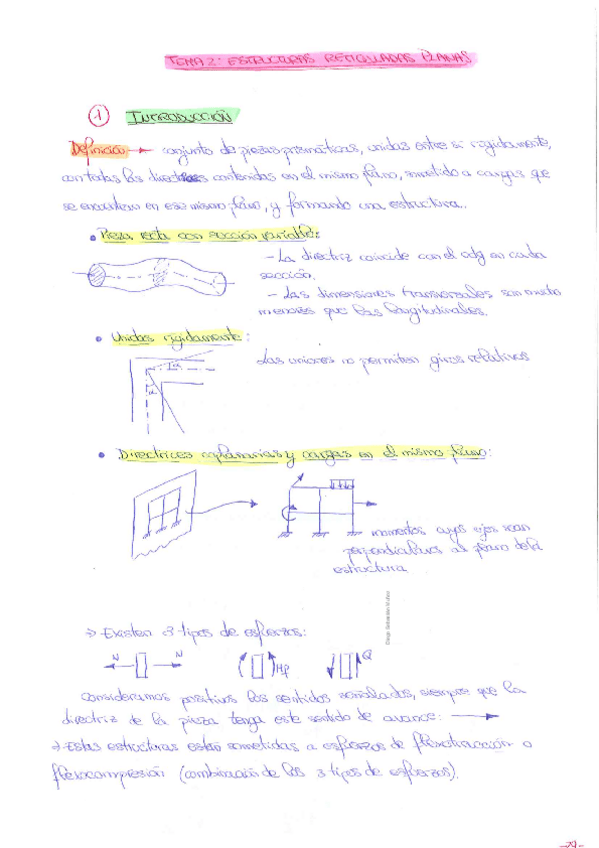 TEMA 2: ESTRUCTURAS RETICULADAS PLANAS
1 INTRODUCCIÓN
Definición → conjunto de piezas prismáticas, unidas entre sí rígidamente,
con todas las directrices contenidas en el mismo plano, sometido a cargas que
se encuentran en ese mismo plano, y formando una estructura.
• Pieza recta con sección variable:
- La directriz coincide con el cdg en cada
sección.
- Las dimensiones transversales son mucho
menores que las longitudinales.
• Unidas rígidamente:
Las uniones no permiten giros relativos
α
α
• Directrices coplanarias y cargas en el mismo plano:
momentos cuyos ejes sean
perpendiculares al plano de la
estructura
⇒ Existen 3 tipos de esfuerzos:
N N Q
Consideramos positivos los sentidos señalados, siempre que la
directriz de la pieza tenga este sentido de avance: →
⇒ Estas estructuras están sometidas a esfuerzos de flexotracción o
flexocompresión (combinación de los 3 tipos de esfuerzos).